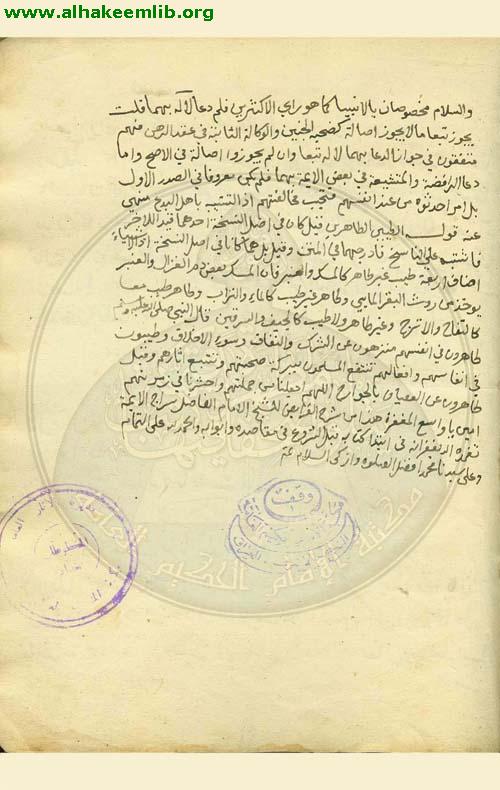 www.alhakeemlib.org
والسلام مخصوصان بالانبيا كما هو راي الاكثرين فلم دعا لآله بهما قلت
يجوز تبعا ما لا يجوز اصالة كضحية الجنين والوكالة الثابتة في عقد الرهن فهم
متفقون في جواز الدعا بهما لآله تبعا وان لم يجوزوا اصالة في الاصح واما
دعا الرافضة والمتشيعة في بعض الايمة بهما فلم يكن معروفا في الصدر الاول
بل امر احدثوه من عند انفسهم فتجب مخالفتهم اذ التشبه باهل البدع منهي
عنه قوله الطيبين الطاهرين قيل كان في اصل النسخة احدهما قيد الاخر
فاشتبه على الناسخ فادرجهما في المتن وقيل بل هما كانا في اصل النسخة اذ الاشياء
اصناف اربعة طيب غير طاهر كالمسك والعنبر فان المسك بعض دم الغزال والعنبر
يوخذ من روث البقر المايي وطاهر غير طيب كالماء والتراب وطاهر طيب معا
كالتفاح والاترج وغير طاهر ولا طيب كالجيف والسرقين قال النبي صلى الله عليه وسلم
طاهرون في انفسهم منزهون عن الشرك والنفاق وسوء الاخلاق وطيبون
في انفاسهم وافعالهم تنتفع المسلمون ببركة صحبتهم وتتبع اثارهم وقيل
طاهرون عن العصيان بالجوارح اللهم اجعلنا من جملتهم واحشرنا في زمرتهم
امين يا واسع المغفرة هذا من شرح الفرايض للشيخ الامام الفاضل سراج الايمة
تغمده الله بغفرانه في ابتدا كتابه قبل الشروع في مقاصده وابوابه والحمد لله على التمام
وعلى سيدنا محمد افضل الصلوة وازكى السلام تم
وقف